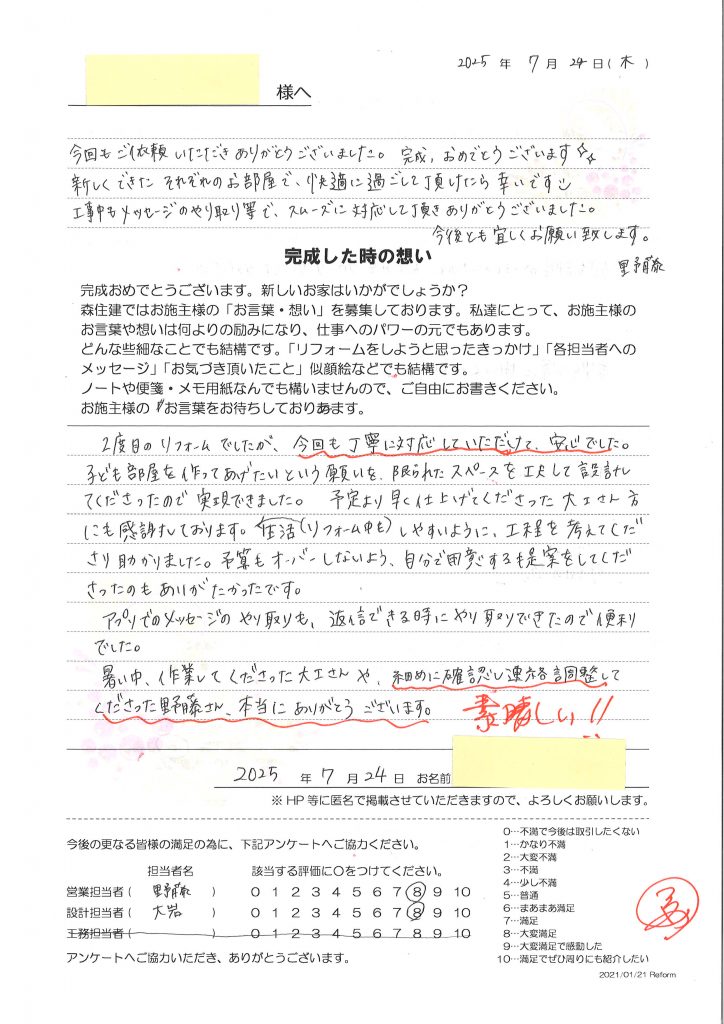 2025 年 7 月 24 日 ( 木 )
様へ
今回もご依頼いただきありがとうございました。 完成、おめでとうございます☆☆
新しくできた それぞれのお部屋で、快適に過ごして頂けたら幸いです
工事中もメッセージのやり取り等で、スムーズに対応して頂きありがとうございました。
今後とも宜しくお願い致します。
野藤
完成した時の想い
完成おめでとうございます。新しいお家はいかがでしょうか？
森住建ではお施主様の「お言葉・想い」を募集しております。私達にとって、お施主様の
お言葉や想いは何よりの励みになり、仕事へのパワーの元でもあります。
どんな些細なことでも結構です。「リフォームをしようと思ったきっかけ」「各担当者への
メッセージ」「お気づき頂いたこと」似顔絵などでも結構です。
ノートや便箋・メモ用紙なんでも構いませんので、ご自由にお書きください。
お施主様の お言葉をお待ちしております。
2度目のリフォームでしたが、今回も丁寧に対応していただけて、安心でした。
子ども部屋を作ってあげたいという願いを、限られたスペースを工夫して設計し
てくださったので実現できました。 予定より早く仕上げてくださった大工さん方
にも感謝しております。生活(リフォーム中も)しやすいように、工程を考えてくだ
さり助かりました。予算もオーバーしないよう、自分で用意する提案をしてくだ
さったのもありがたかったです。
アプリでのメッセージのやり取りも、返信できる時にやり取りできたので便利
でした。
暑い中、作業してくださった大工さんや、細めに確認し連絡調整して
くださった野藤さん、本当にありがとうございます。 素晴しい!!
2025 年 7 月 24 日 お名前
※ HP 等に匿名で掲載させていただきますので、よろしくお願いします。
今後の更なる皆様の満足の為に、下記アンケートへご協力ください。
担当者名 該当する評価に○をつけてください。
営業担当者 ( 野藤 ) 0 1 2 3 4 5 6 7 8 9 10
設計担当者 ( 大岩 ) 0 1 2 3 4 5 6 7 8 9 10
工務担当者 ( ) 0 1 2 3 4 5 6 7 8 9 10
アンケートへご協力いただき、ありがとうございます。
0…不満で今後は取引したくない
1…かなり不満
2…大変不満
3…不満
4…少し不満
5…普通
6…まあまあ満足
7…満足
8…大変満足
9…大変満足で感動した
10…満足でぜひ周りにも紹介したい
2021/01/21 Reform